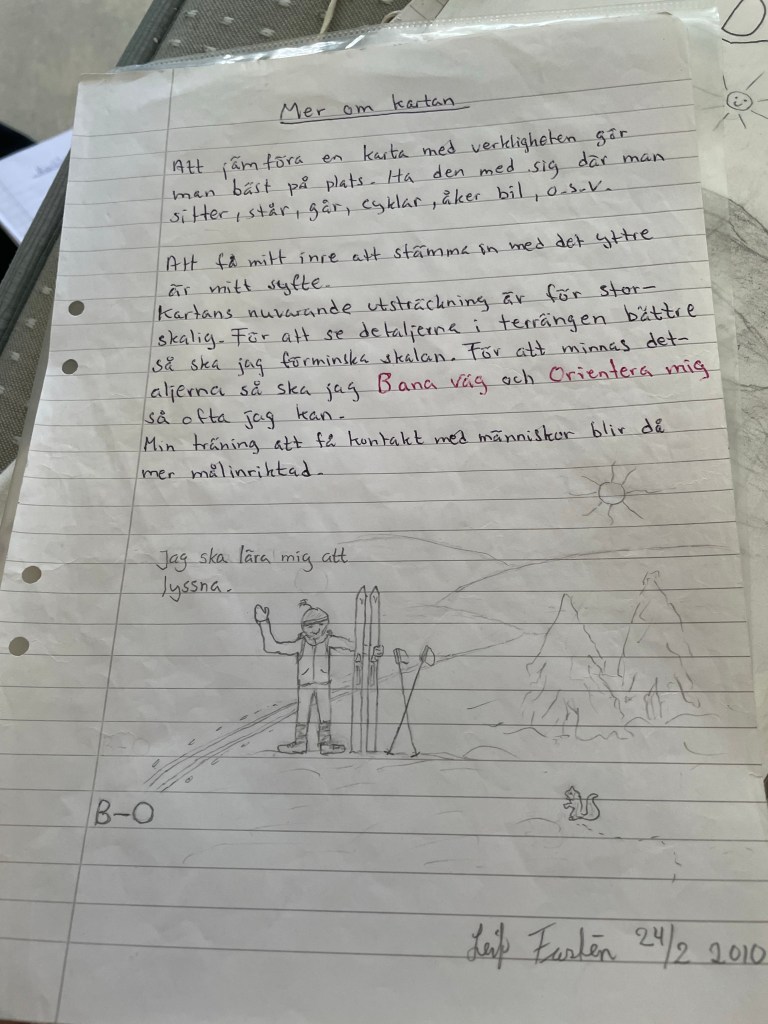 Mer om kartan
Att jämföra en karta med verkligheten gör
man bäst på plats. Ha den med sig där man
sitter, står, går, cyklar, åker bil, o.s.v.
Att få mitt inre att stämma in med det yttre
är mitt syfte.
Kartans nuvarande utsträckning är för stor-
skalig. För att se detaljerna i terrängen bättre
så ska jag förminska skalan. För att minnas det-
aljerna så ska jag Bana väg och Orientera mig
så ofta jag kan.
Min träning att få kontakt med människor blir då
mer målinriktad.
Jag ska lära mig att
lyssna.
B-O
Leif 24/2 2010